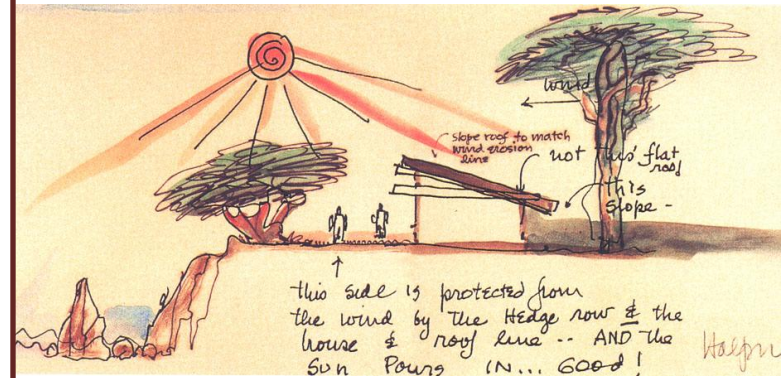 wind
slope roof to match
wind erosion
line
not this' flat
roof
this
slope -
this side is protected from
the wind by The Hedge row & the
house & roof line -- AND The
Sun Pours IN... GOOD!